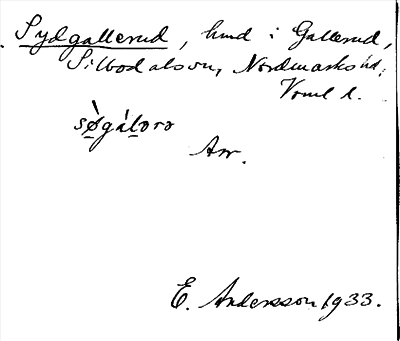 Sydgallerud, hmd i Gallerud,
Silbodals sn, Nordmarks hd,
Värml. l.
sø̀gálərə
Arr.
E. Andersson 1933.